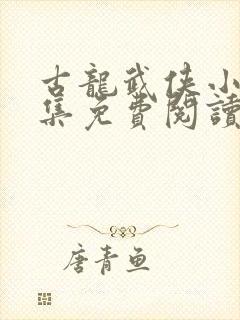 古龍武俠小
集免費閱讀
唐青魚